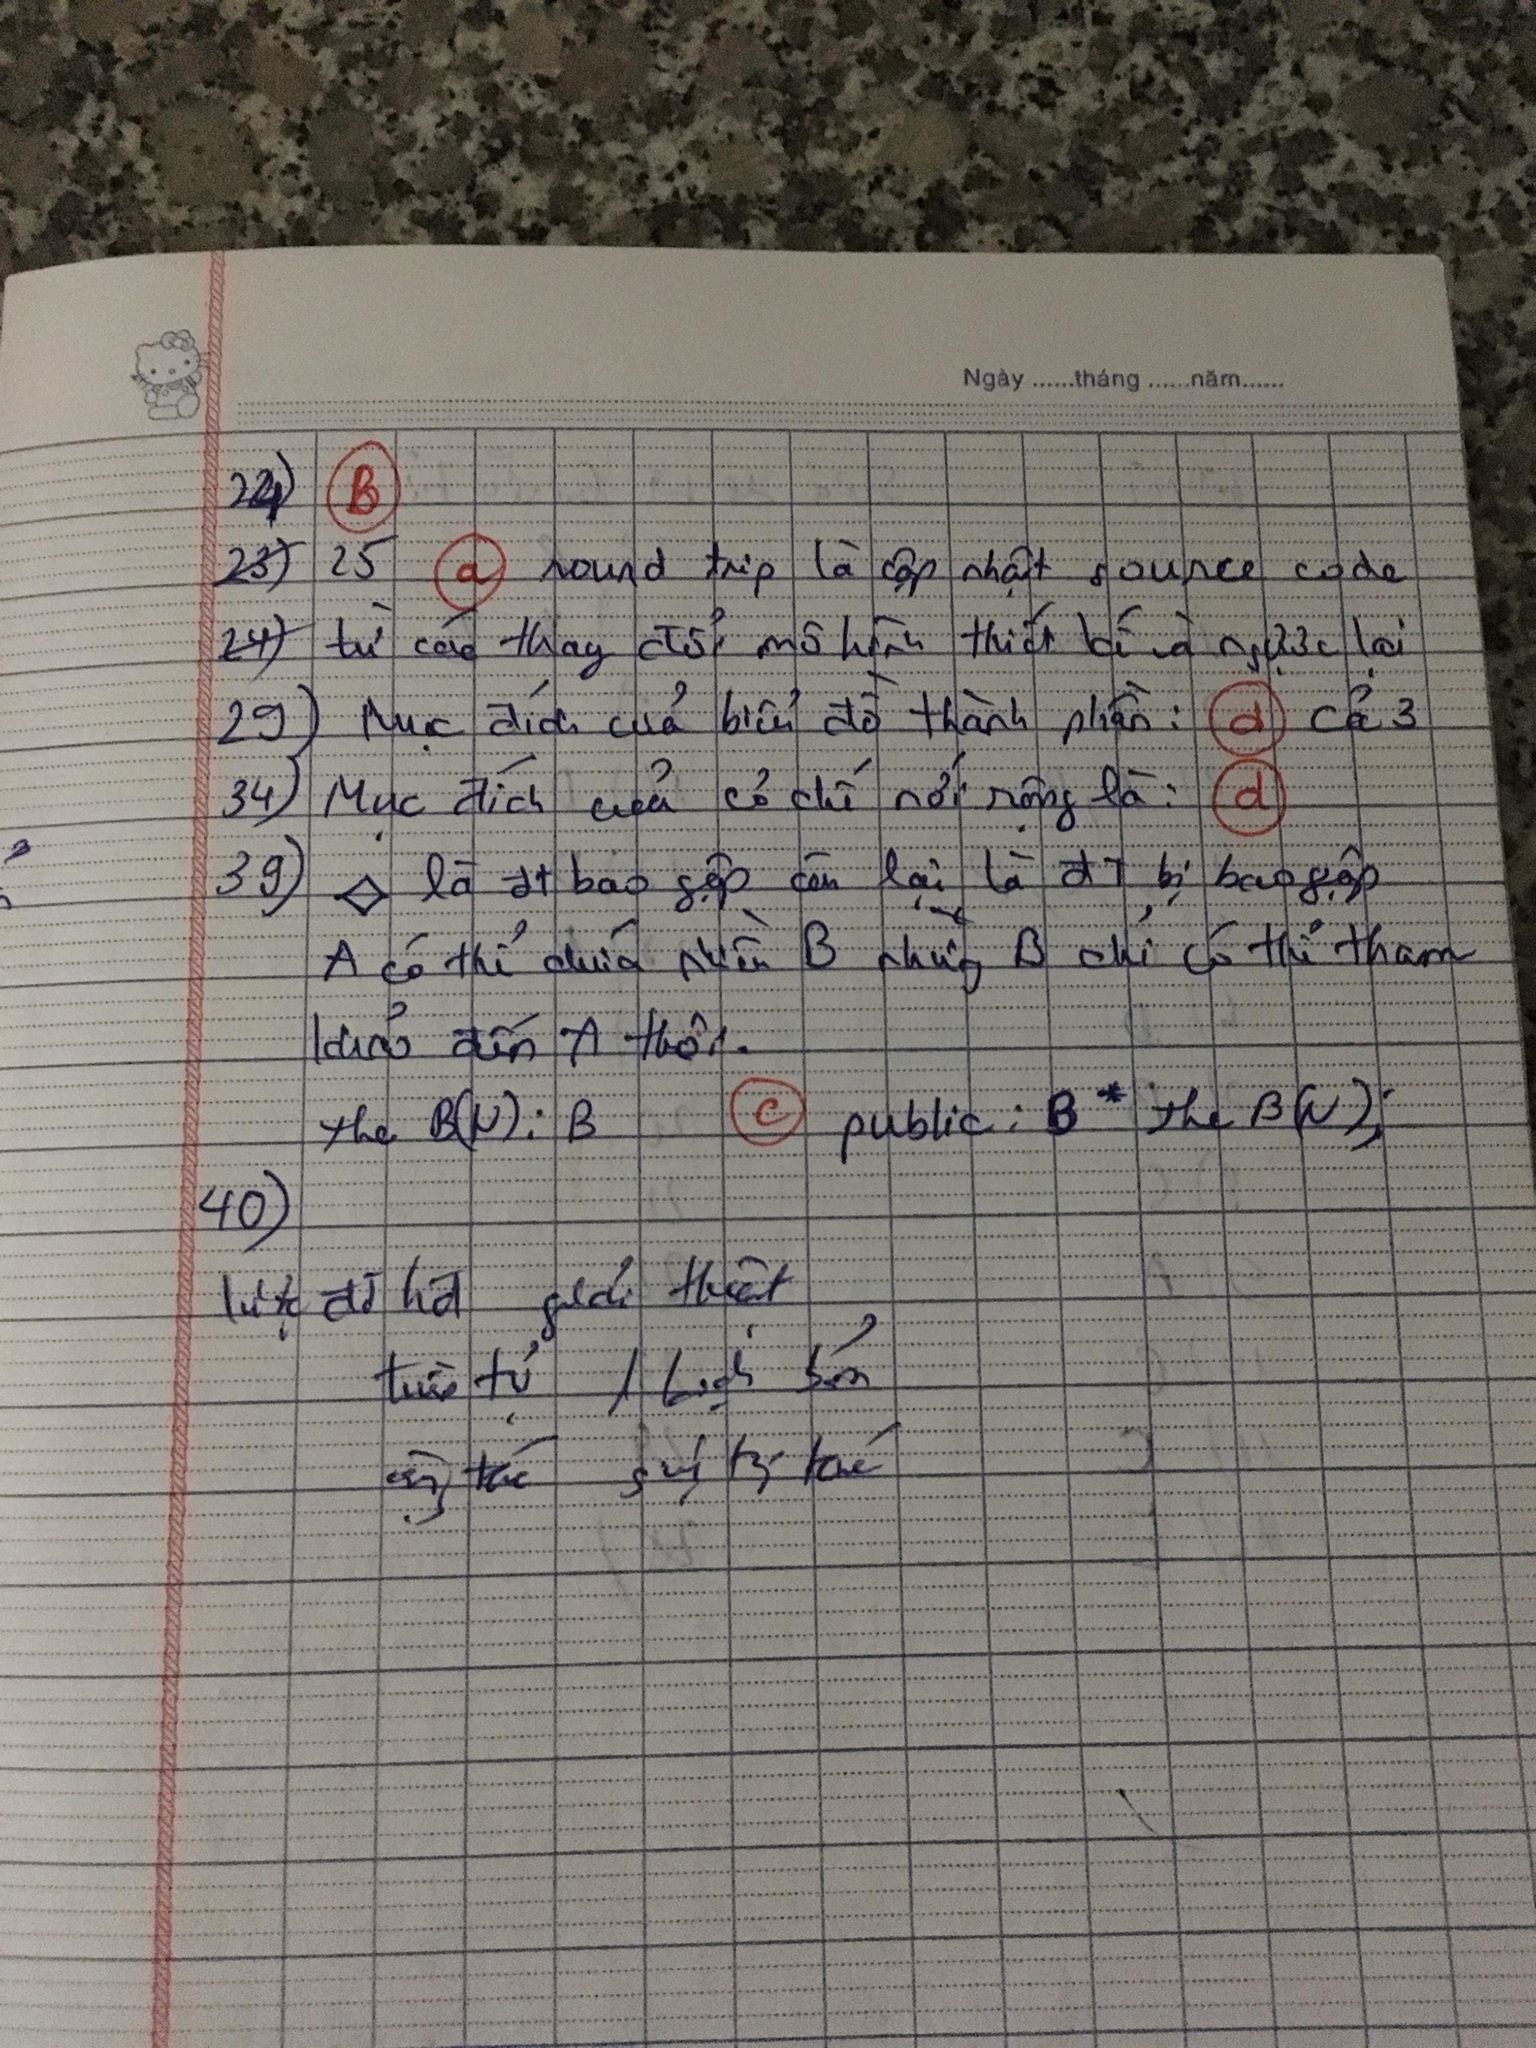 Ngày ......tháng ......năm......
24) B
23) 25 a round trip là cập nhật source code
24) từ các thay đổi mô hình thiết kế và ngược lại
29) Mục đích của biểu đồ thành phần: d cả 3
34) Mục đích của cơ chế nới rộng là: d
39) ◇ là đt bao gộp còn lại là đt bị bao gộp
A có thể chứa nhiều B nhưng B chỉ có thể tham
khảo đến A thôi.
the B(N): B c public: B * the B(N);
40)
lược đồ hđ giải thuật
tuần tự kịch bản